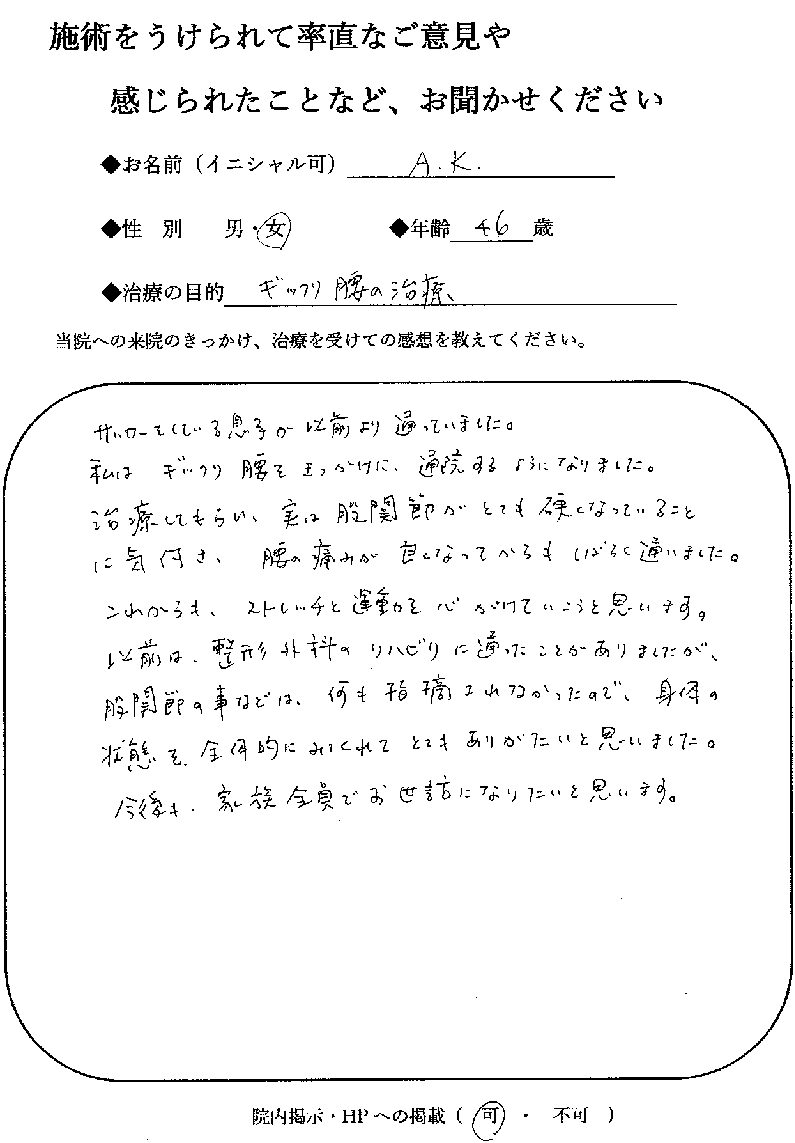 施術をうけられて率直なご意見や
感じられたことなど、お聞かせください
◆お名前（イニシャル可） A.K.
◆性 別 男・女 ◆年齢 46 歳
◆治療の目的 ギックリ腰の治療、
当院への来院のきっかけ、治療を受けての感想を教えてください。
サッカーをしている息子が以前より通っていました。
私は ギックリ腰をきっかけに、通院するようになりました。
治療してもらい、実は股関節がとても硬くなっていること
に気付き、腰の痛みが良くなってからもしばらく通いました。
これからも、ストレッチと運動を心がけていこうと思います。
以前は、整形外科のリハビリに通ったことがありましたが、
股関節の事などは、何も指摘されなかったので、身体の
状態を、全体的にみてくれてとてもありがたいと思いました。
今後も、家族全員でお世話になりたいと思います。
院内掲示・HPへの掲載（ 可 ・ 不可 ）